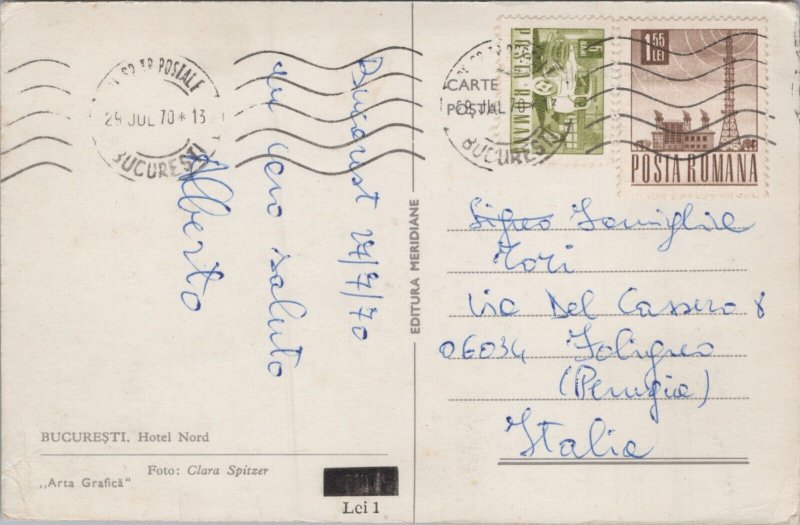 29 JUL 70 * 13
BUCUREȘTI
Bucarest 27/7/70
un caro saluto
Alberto
BUCUREȘTI. Hotel Nord
Foto: Clara Spitzer
„Arta Grafică”
Lei 1
EDITURA MERIDIANE
CARTE
POȘTALĂ
BUCUREȘTI
POSTA ROMANA
1,55
LEI
POSTA ROMANA
Famiglia
Tori
Via Del Cassero 8
06034 Foligno
(Perugia)
Italia